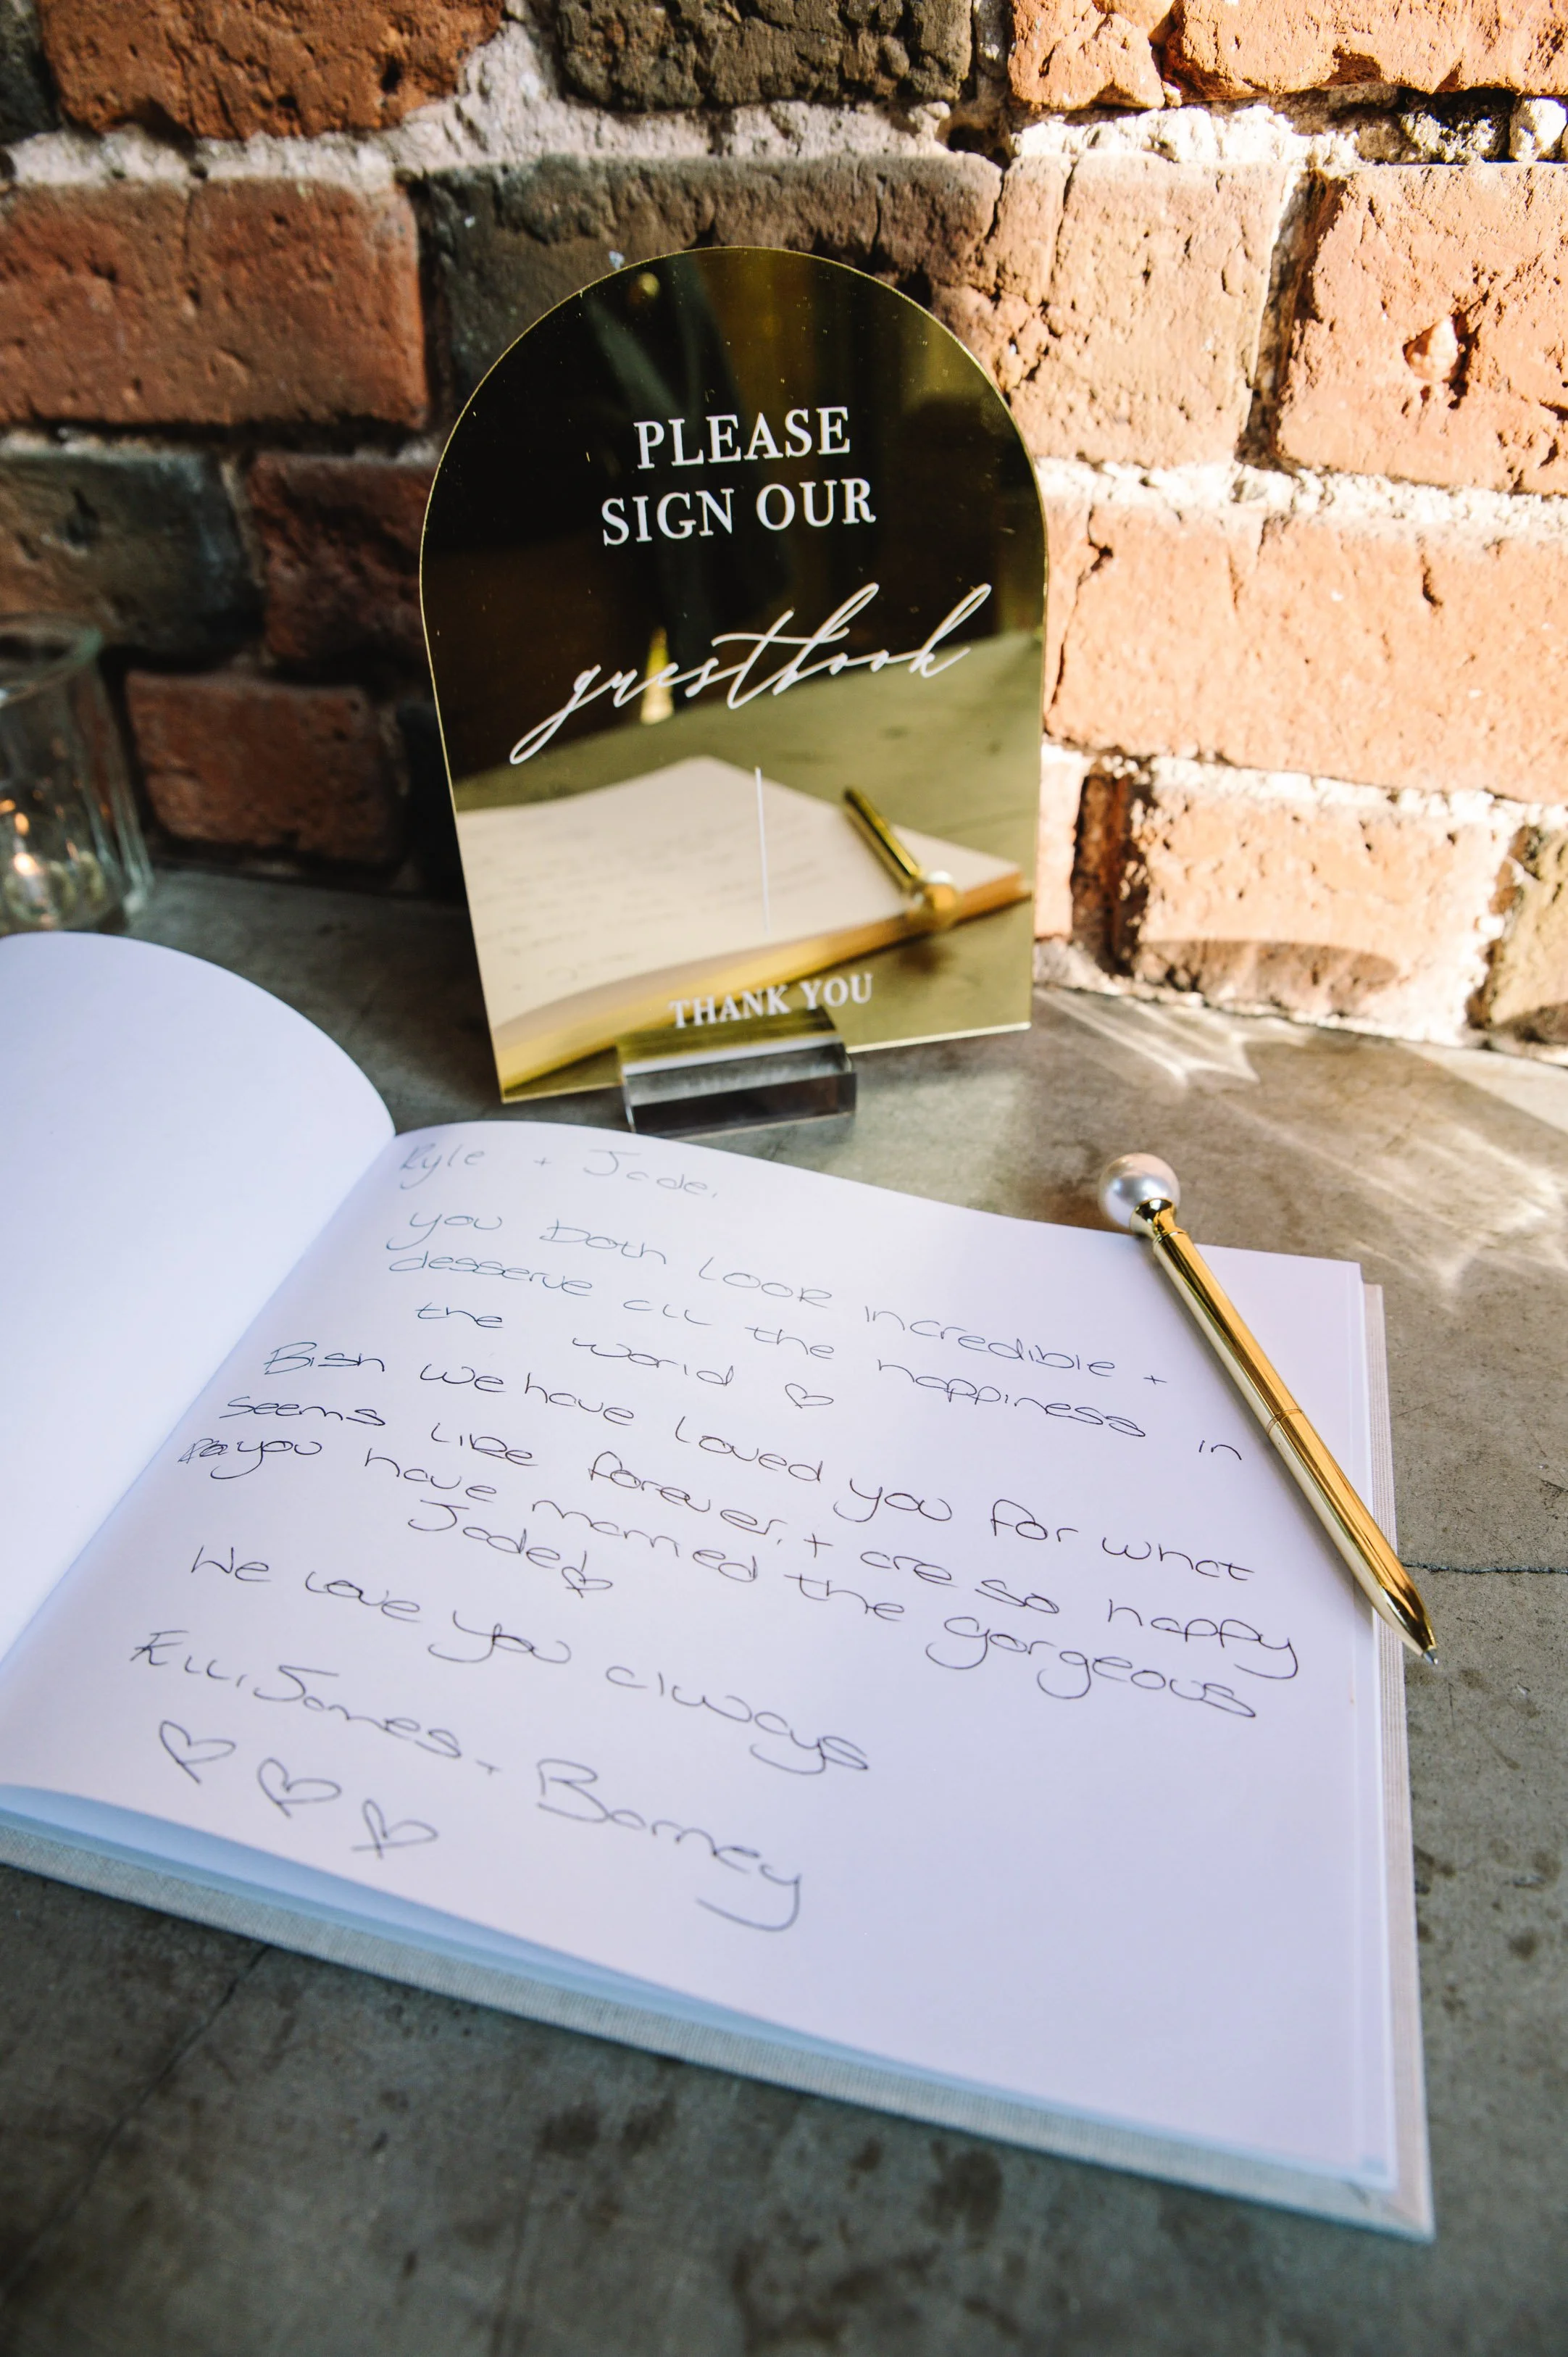 PLEASE
SIGN OUR
guestbook
THANK YOU
Kyle + Jade,
you both look incredible +
desserve all the happiness in
the world ♡
Bish we have loved you for what
seems like forever, + are so happy
you have married the gorgeous
Jade! ♡
We love you always
Elli, James + Barney
♡ ♡ ♡